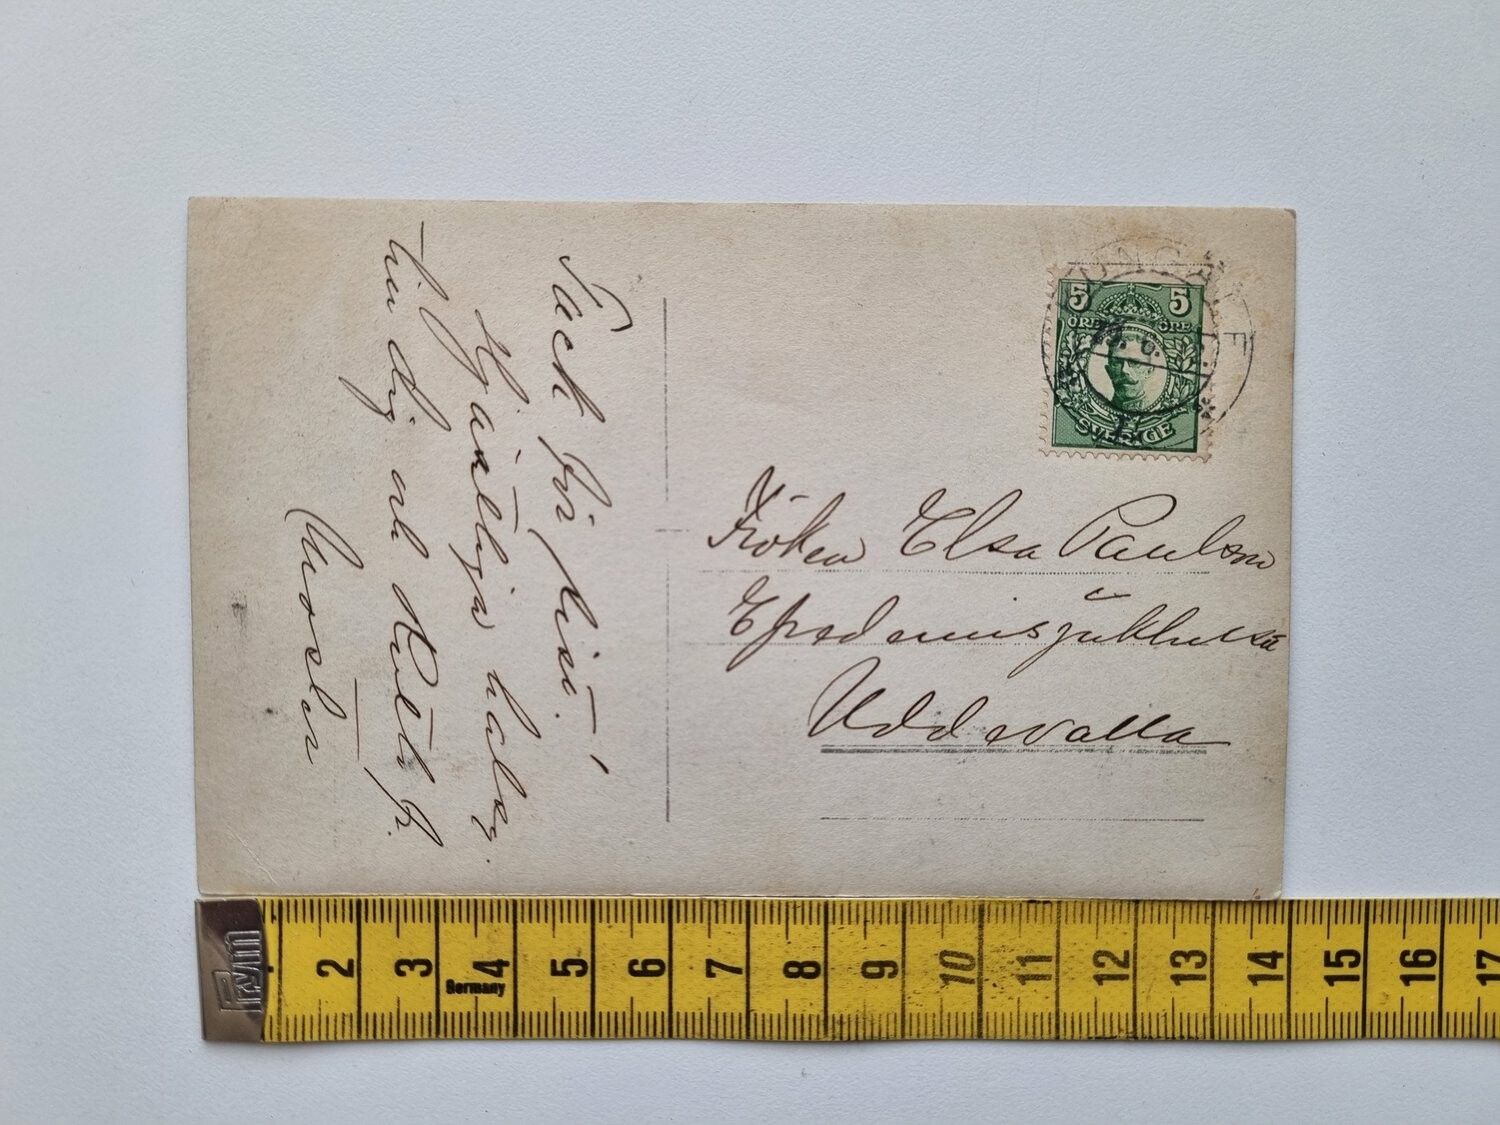 Tack för sist!
Hjärtliga hälsn.
till dig och Ruth fr.
Moster
Fröken Elsa Paulson
Epedemisjukhuset
Uddevalla
5 5
ÖRE ÖRE
SVERIGE
Prym
2 3 4 5 6 7 8 9 10 11 12 13 14 15 16 17
Germany